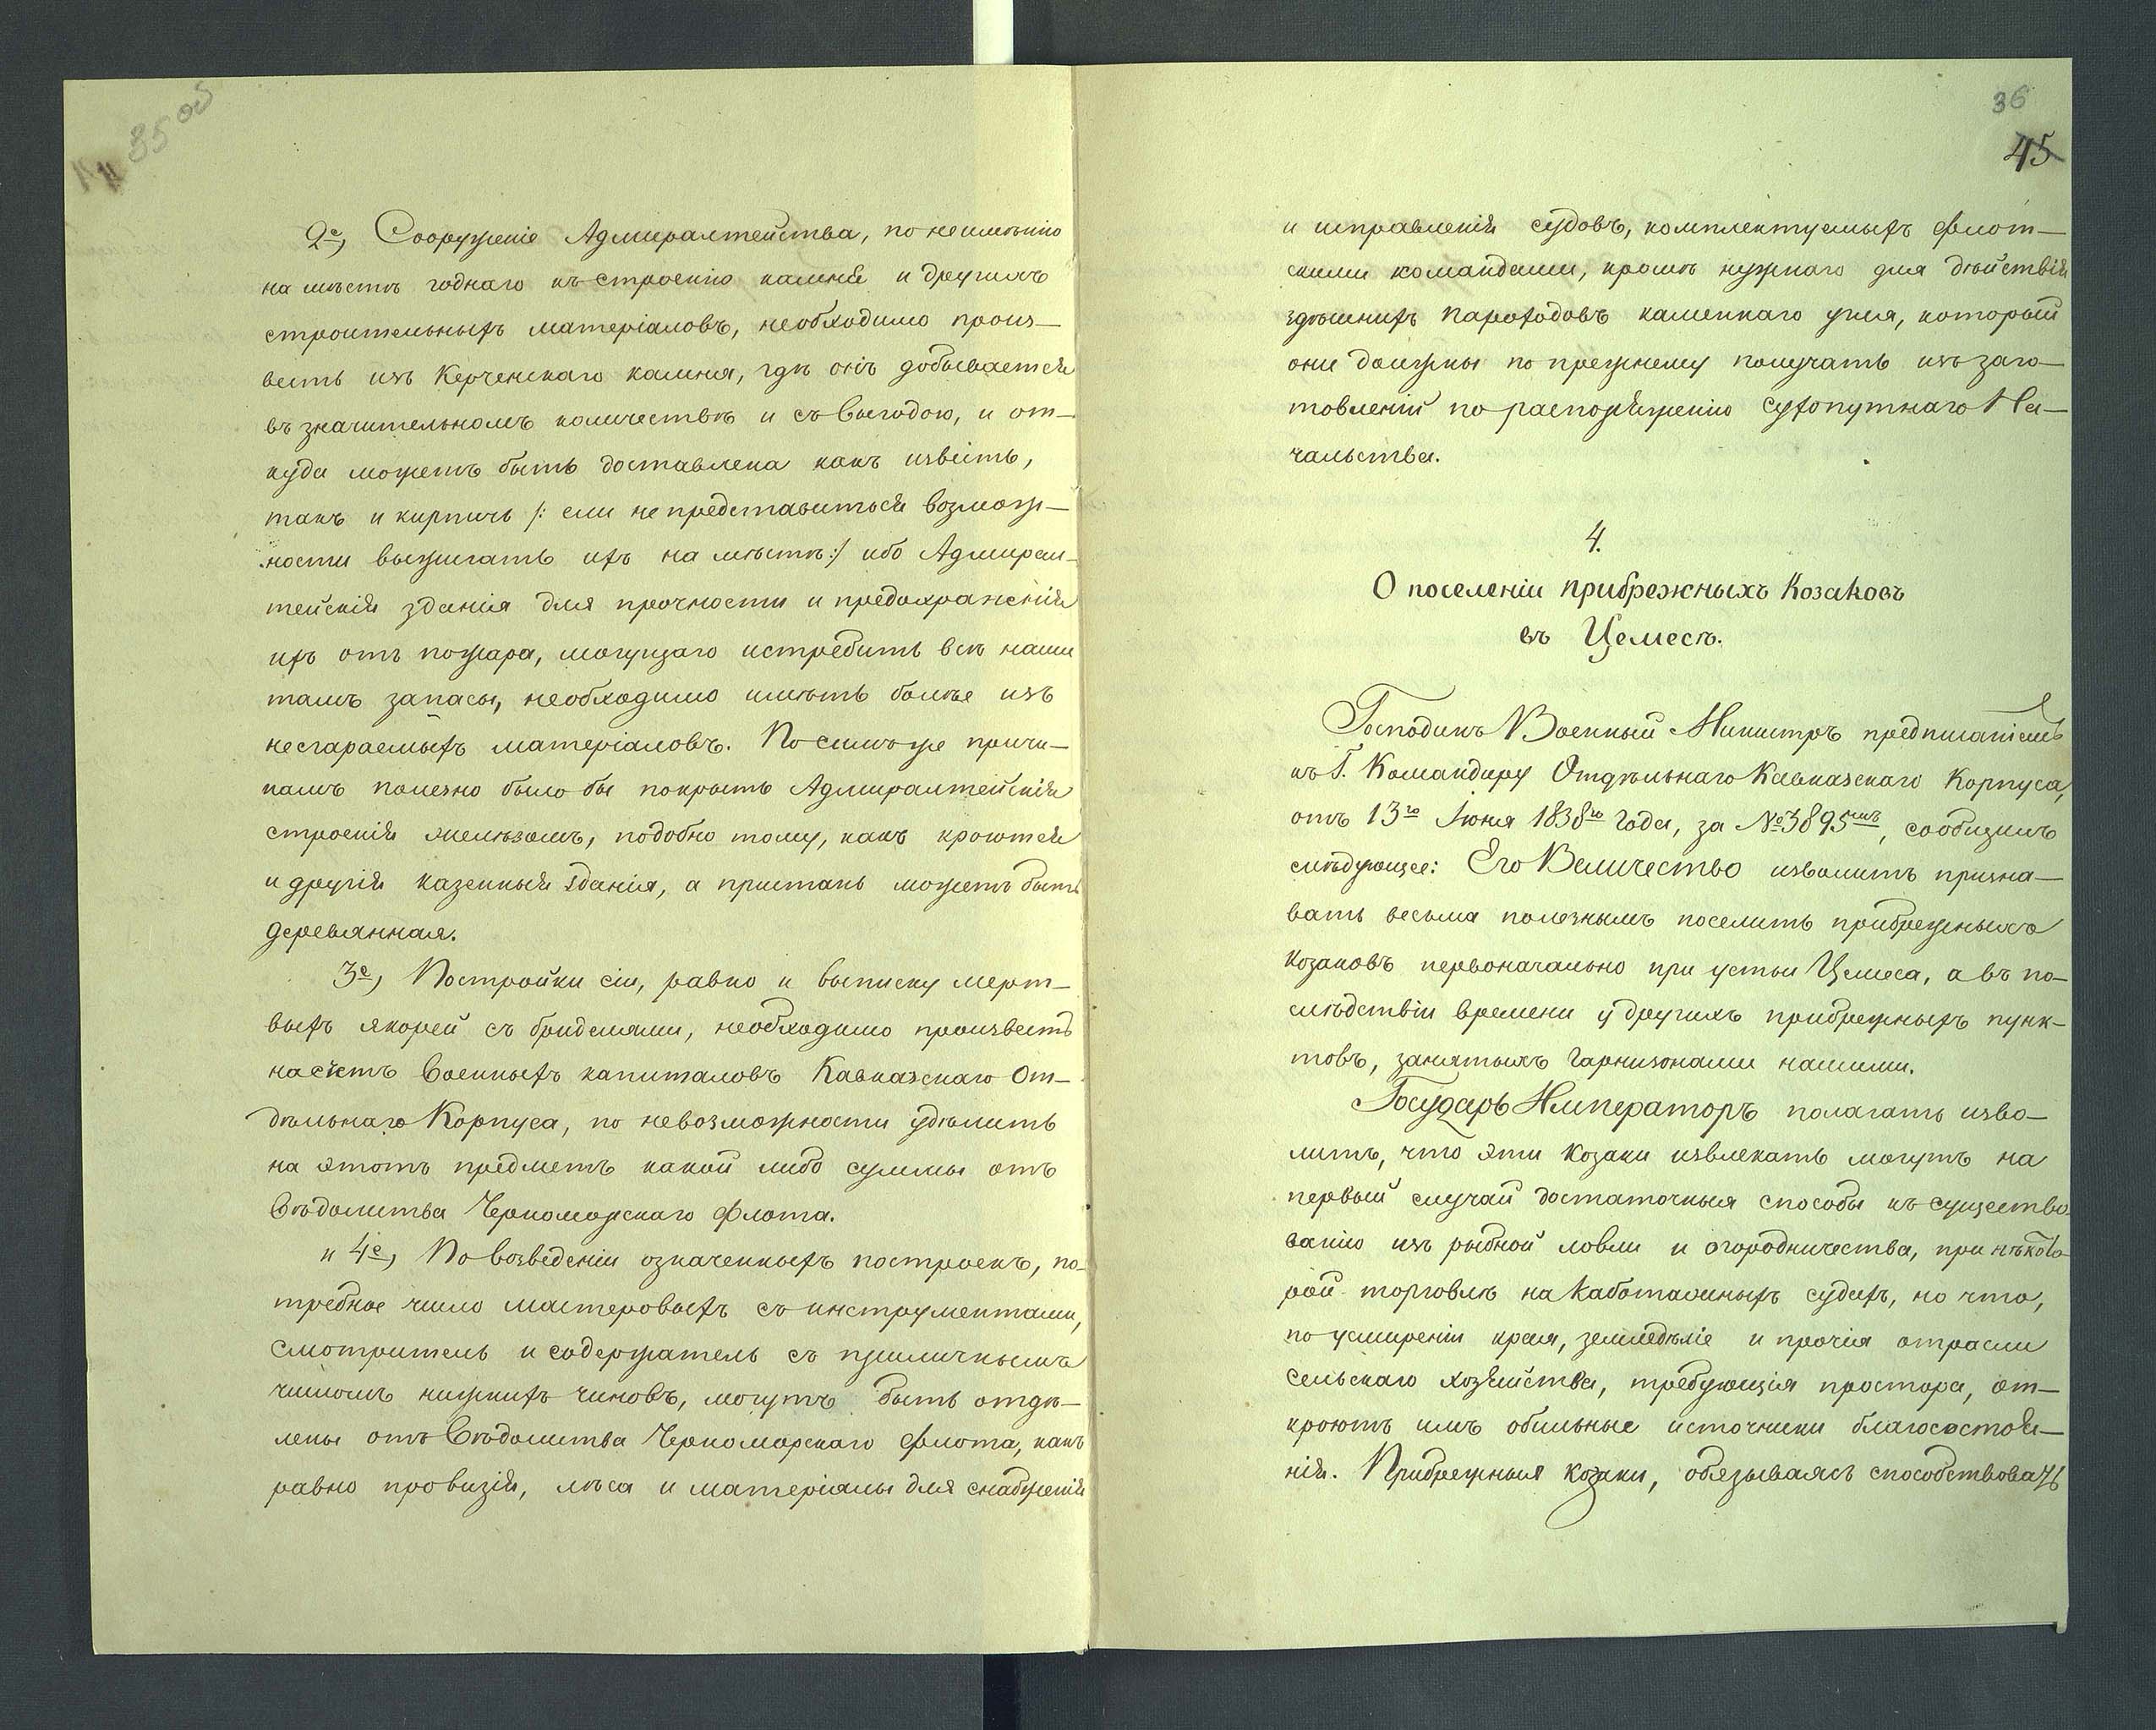 35 об
2е, Сооруженіе Адмиралтейства, по неимѣнію
на мѣстѣ годнаго къ строенію камня и другихъ
строительныхъ матеріаловъ, необходимо произ-
весть изъ Керченскаго камня, гдѣ онъ добывается
въ значительномъ количествѣ и съ выгодою, и от-
куда можетъ быть доставлена какъ извѣсть,
такъ и кирпичь /: если не представиться возмож-
ности выжигать ихъ на мѣстѣ:/ ибо Адмирал-
тейскія зданія для прочности и предохраненія
ихъ отъ пожара, могущаго истребить всѣ наши
тамъ запасы, необходимо имѣть болѣе изъ
несгараемыхъ матеріаловъ. По симъ же причи-
намъ полезно было бы покрыть Адмиралтейскія
строенія желѣзомъ, подобно тому, какъ кроются
и другія казенныя зданія, а пристань можетъ быть
деревянная.
3е, Постройки сіи, равно и выписку мерт-
выхъ якорей съ бриделями, необходимо произвесть
на счетъ военныхъ капиталовъ Кавказскаго От-
дѣльнаго Корпуса, по невозможности удѣлить
на этотъ предметъ какой либо суммы отъ
Вѣдомства Черноморскаго флота.
и 4е, По возведеніи означенныхъ построекъ, по-
требное число мастеровыхъ съ инструментами,
смотритель и содержатель съ приличнымъ
числомъ нижнихъ чиновъ, могутъ быть отдѣ-
лены отъ Вѣдомства Черноморскаго флота, какъ
равно провизія, лѣса и матеріалы для снабженія
36
45
и исправленія судовъ, комплектуемыхъ флот-
скими командами, кромѣ нужнаго для дѣйствія
здѣшнихъ пароходовъ каменнаго угля, который
они должны по прежнему получать изъ заго-
товленій по распоряженію сухопутнаго На-
чальства.
4.
О поселеніи прибрежныхъ Козаковъ
въ Цемесѣ.
Господинъ Военный Министръ предписаніемъ
къ Г. Командиру Отдѣльнаго Кавказскаго Корпуса,
отъ 13го Іюня 1838го года, за №3895мъ, сообщилъ
слѣдующее: Его Величество изволитъ призна-
вать весьма полезнымъ поселить прибрежныхъ
козаковъ первоначально при устьи Цемеса, а въ по-
слѣдствіи времени у другихъ прибрежныхъ пунк-
товъ, занятыхъ гарнизонами нашими.
Государь Императоръ полагать изво-
литъ, что эти Козаки извлекать могутъ на
первый случай достаточныя способы къ существо-
ванію изъ рыбной ловли и огородничества, при нѣкото-
рой торговлѣ на каботажныхъ судахъ, но что,
по усмиреніи края, земледѣліе и прочія отрасли
сельскаго хозяйства, требующія простора, от-
кроютъ имъ обильные источники благосостоя-
нія. Прибрежныя козаки, обязываясь способствовать